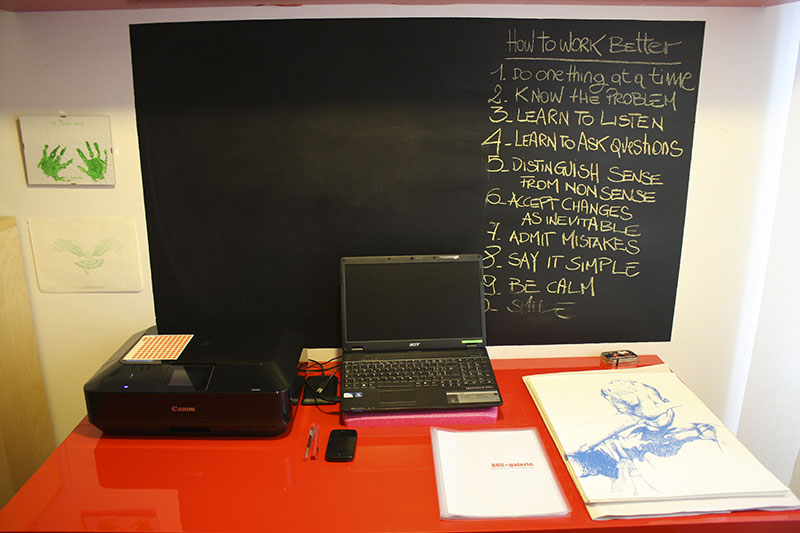 HOW TO WORK BETTER
1. DO one thing at a time
2. KNOW THE PROBLEM
3_ LEARN TO LISTEN
4_ LEARN TO ASK questions
5_ DISTINGUISH SENSE
FROM NONSENSE
6_ ACCEPT CHANGES
AS INEVITABLE
7_ ADMIT MISTAKES
8_ SAY IT SIMPLE
9_ BE CALM
0_ SMILE
acer
Canon